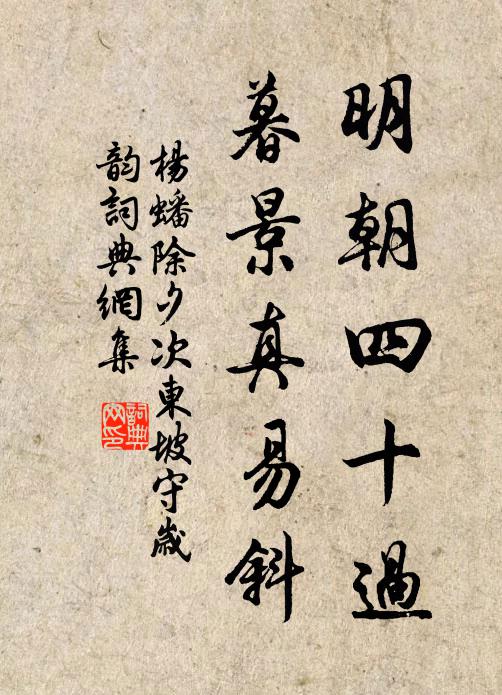 明朝四十過
暮景真易斜
楊蟠除夕次東坡守歲
韵詞典網集
詞典网印